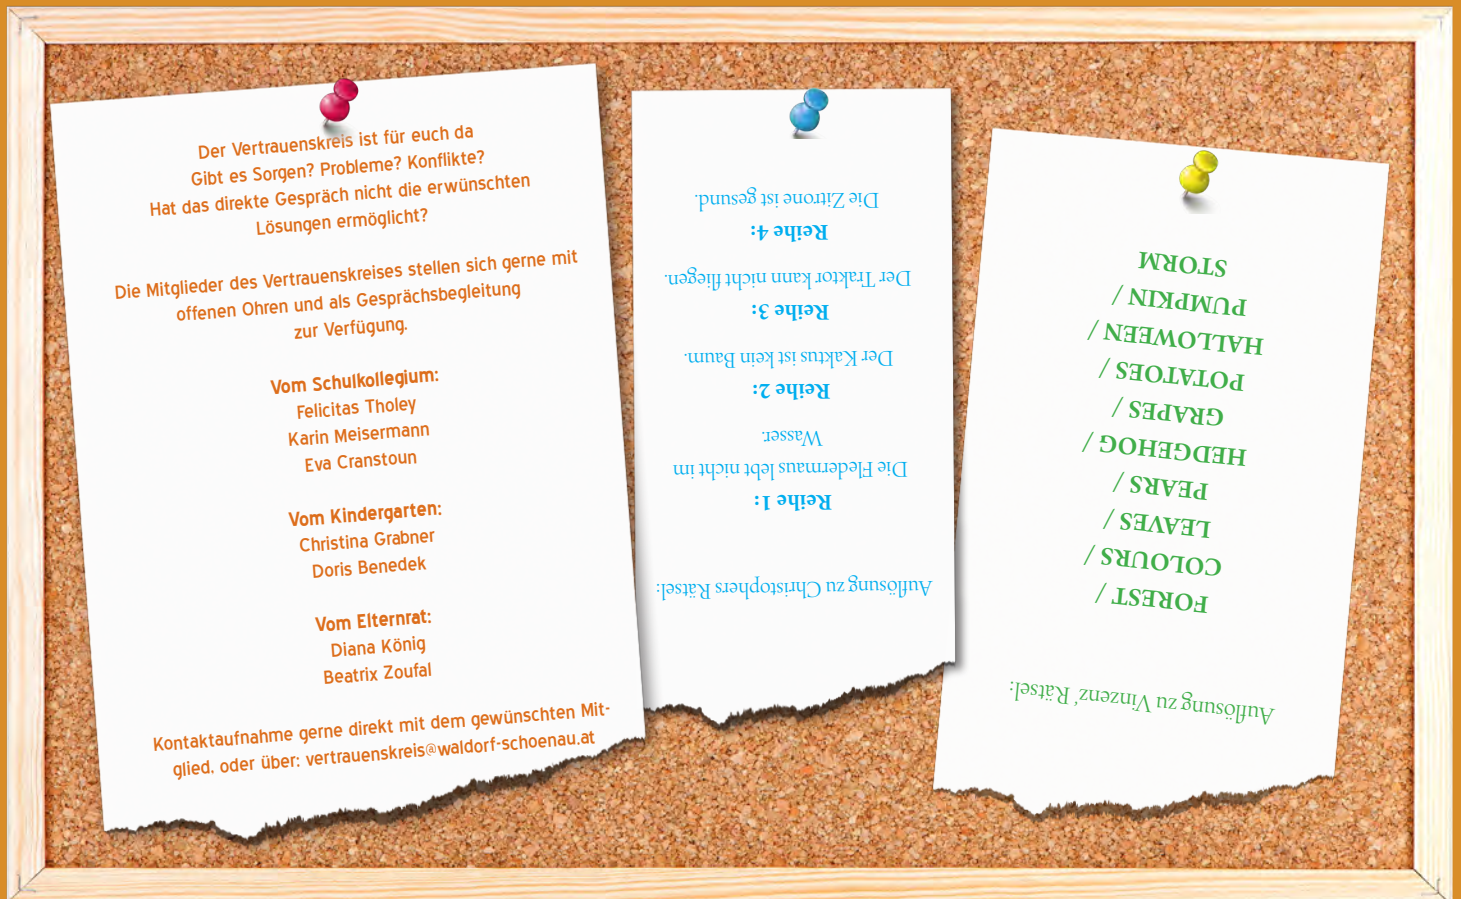 Der Vertrauenskreis ist für euch da
Gibt es Sorgen? Probleme? Konflikte?
Hat das direkte Gespräch nicht die erwünschten
Lösungen ermöglicht?
Die Mitglieder des Vertrauenskreises stellen sich gerne mit
offenen Ohren und als Gesprächsbegleitung
zur Verfügung.
Vom Schulkollegium:
Felicitas Tholey
Karin Meisermann
Eva Cranstoun
Vom Kindergarten:
Christina Grabner
Doris Benedek
Vom Elternrat:
Diana König
Beatrix Zoufal
Kontaktaufnahme gerne direkt mit dem gewünschten Mit-
glied, oder über: vertrauenskreis@waldorf-schoenau.at
Auflösung zu Christophers Rätsel:
Reihe 1:
Die Fledermaus lebt nicht im
Wasser.
Reihe 2:
Der Kaktus ist kein Baum.
Reihe 3:
Der Traktor kann nicht fliegen.
Reihe 4:
Die Zitrone ist gesund.
Auflösung zu Vinzenz' Rätsel:
FOREST /
COLOURS /
LEAVES /
PEARS /
HEDGEHOG /
GRAPES /
POTATOES /
HALLOWEEN /
PUMPKIN /
STORM